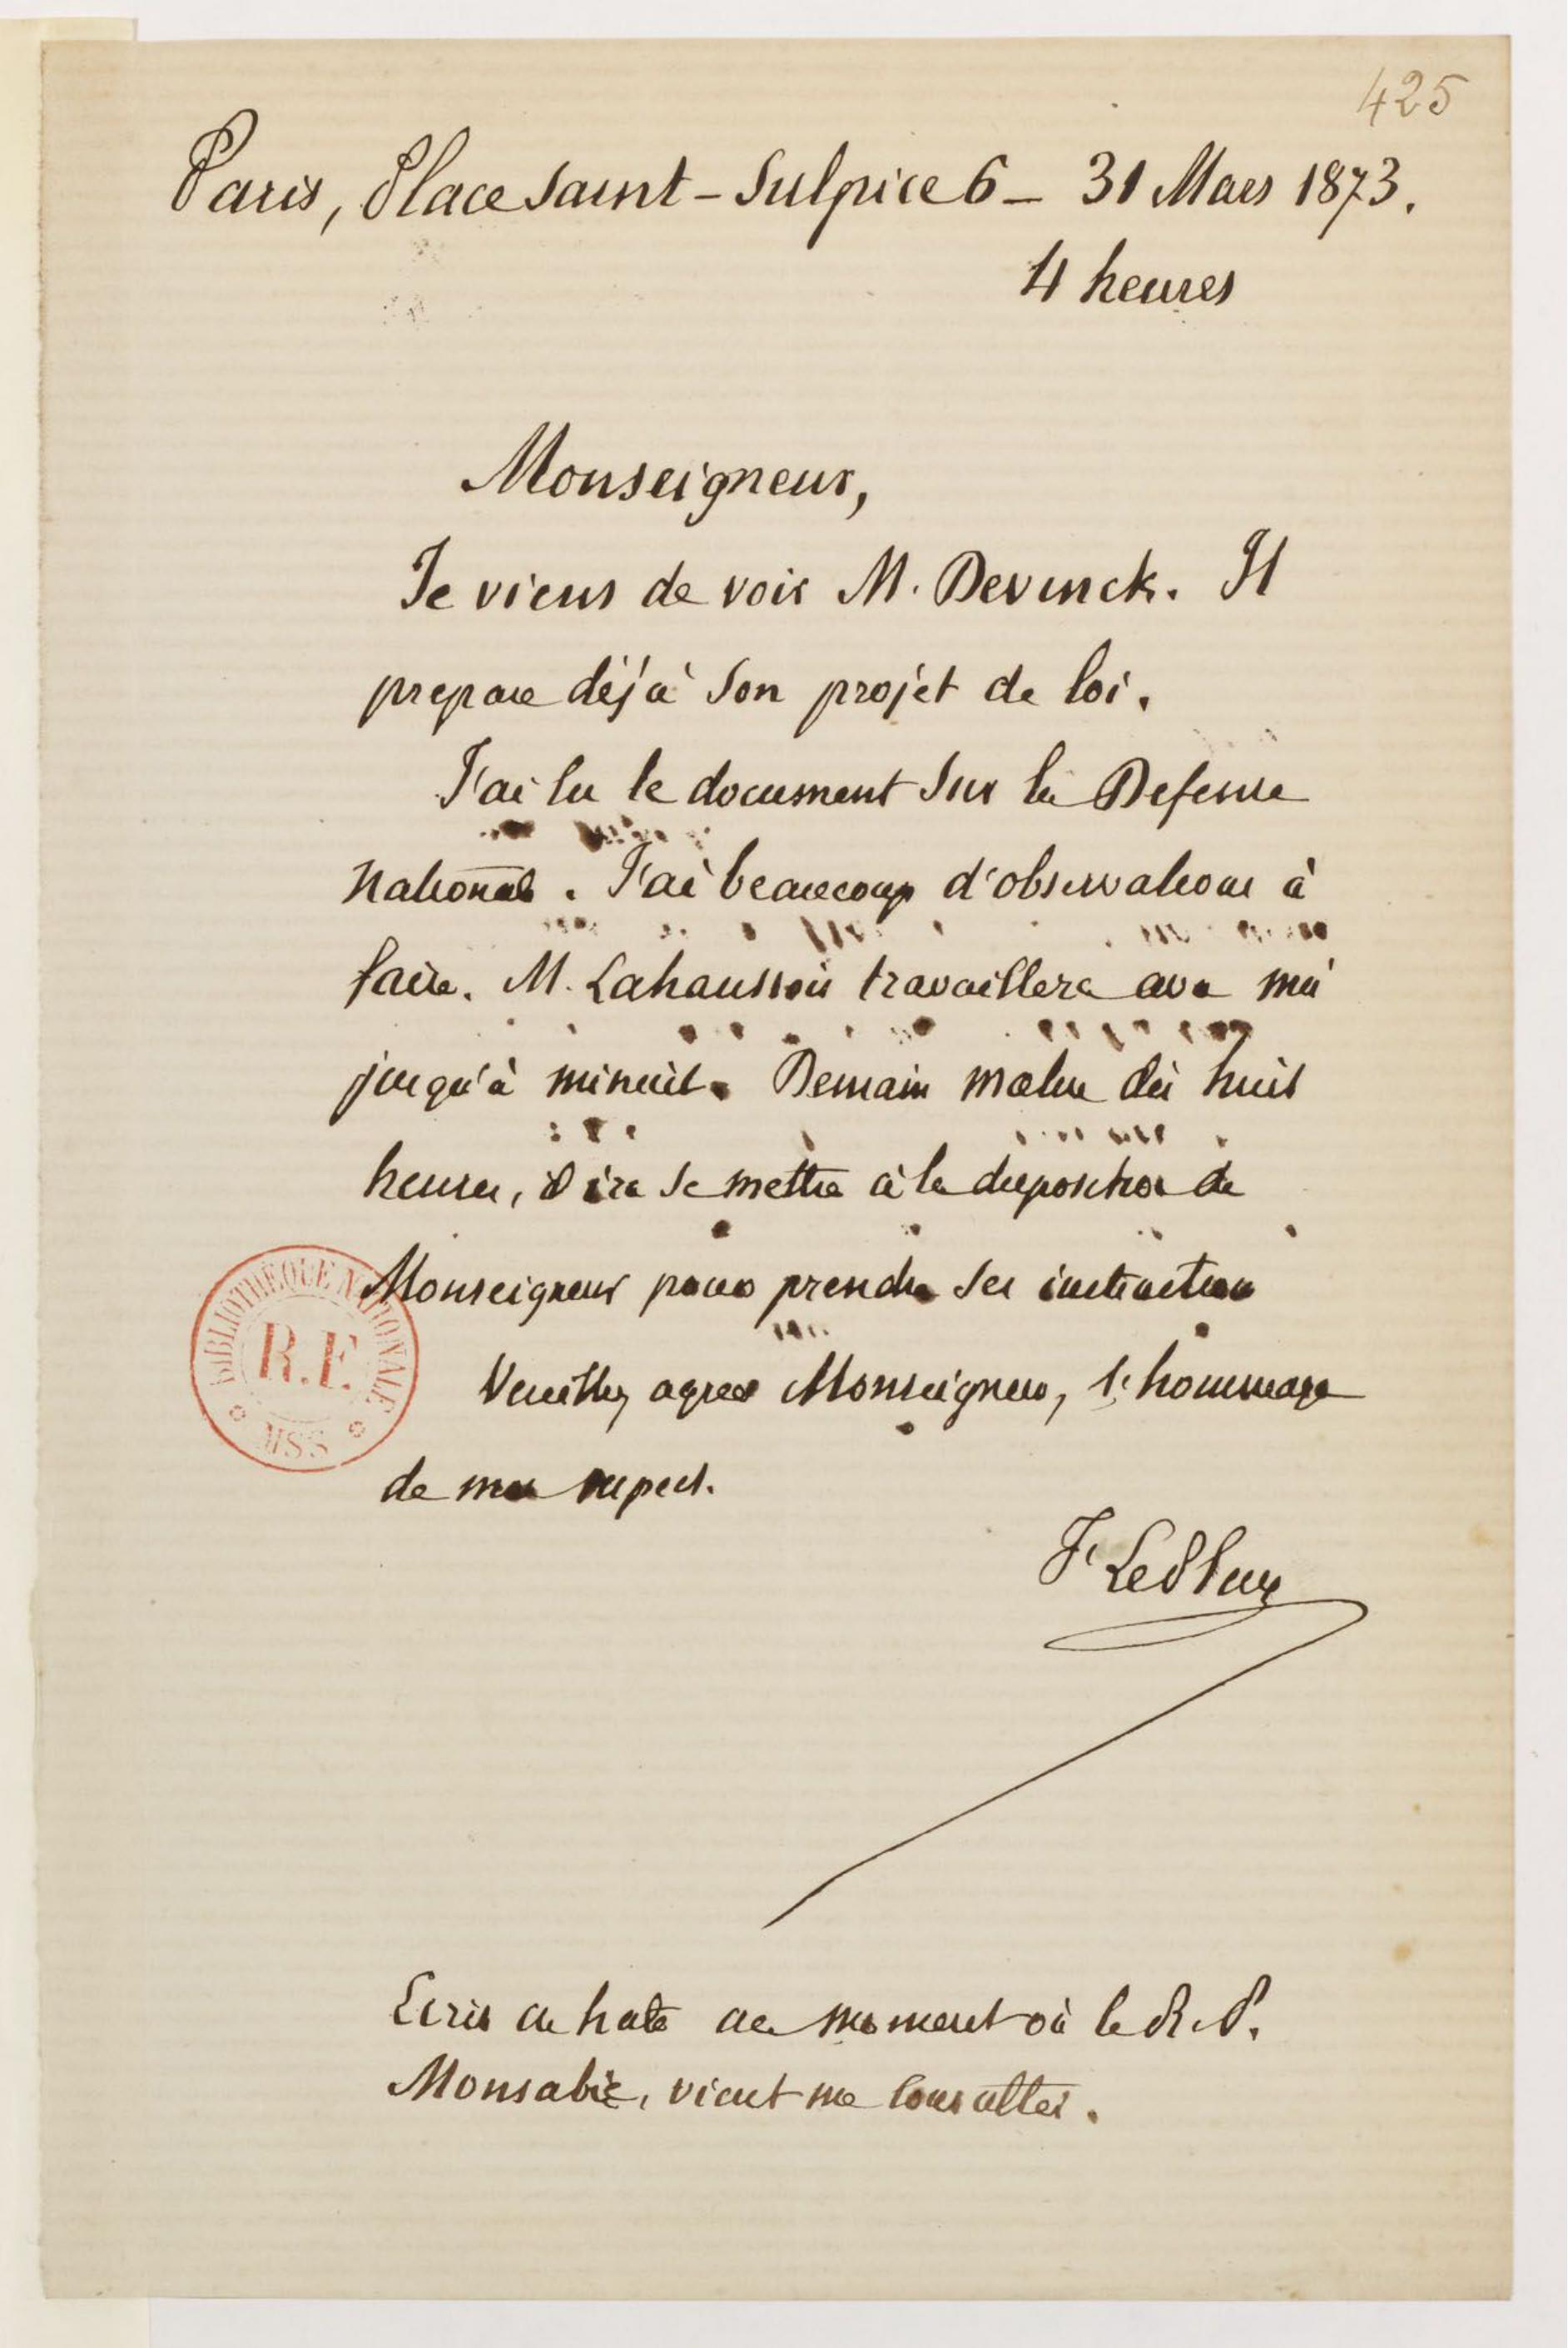 425
Paris, Place Saint-Sulpice 6 - 31 Mars 1873.
4 heures
Monseigneur,
Je viens de voir M. Devinck. Il
prepare déjà son projet de loi.
J'ai lu le document sur la Defense
nationale. J'ai beaucoup d'observations à
faire. M. Lahaussois travaillera avec moi
jusqu'à minuit. Demain matin dès huit
heures, il ira se mettre à la disposition de
Monseigneur pour prendre ses instructions
Veuillez agreer Monseigneur, l'hommage
de mon respect.
F. LePlay
Ecris en hate au moment où le R.P.
Monsabré, vient me consulter.
BIBLIOTHEQUE NATIONALE
R.F.
MSS